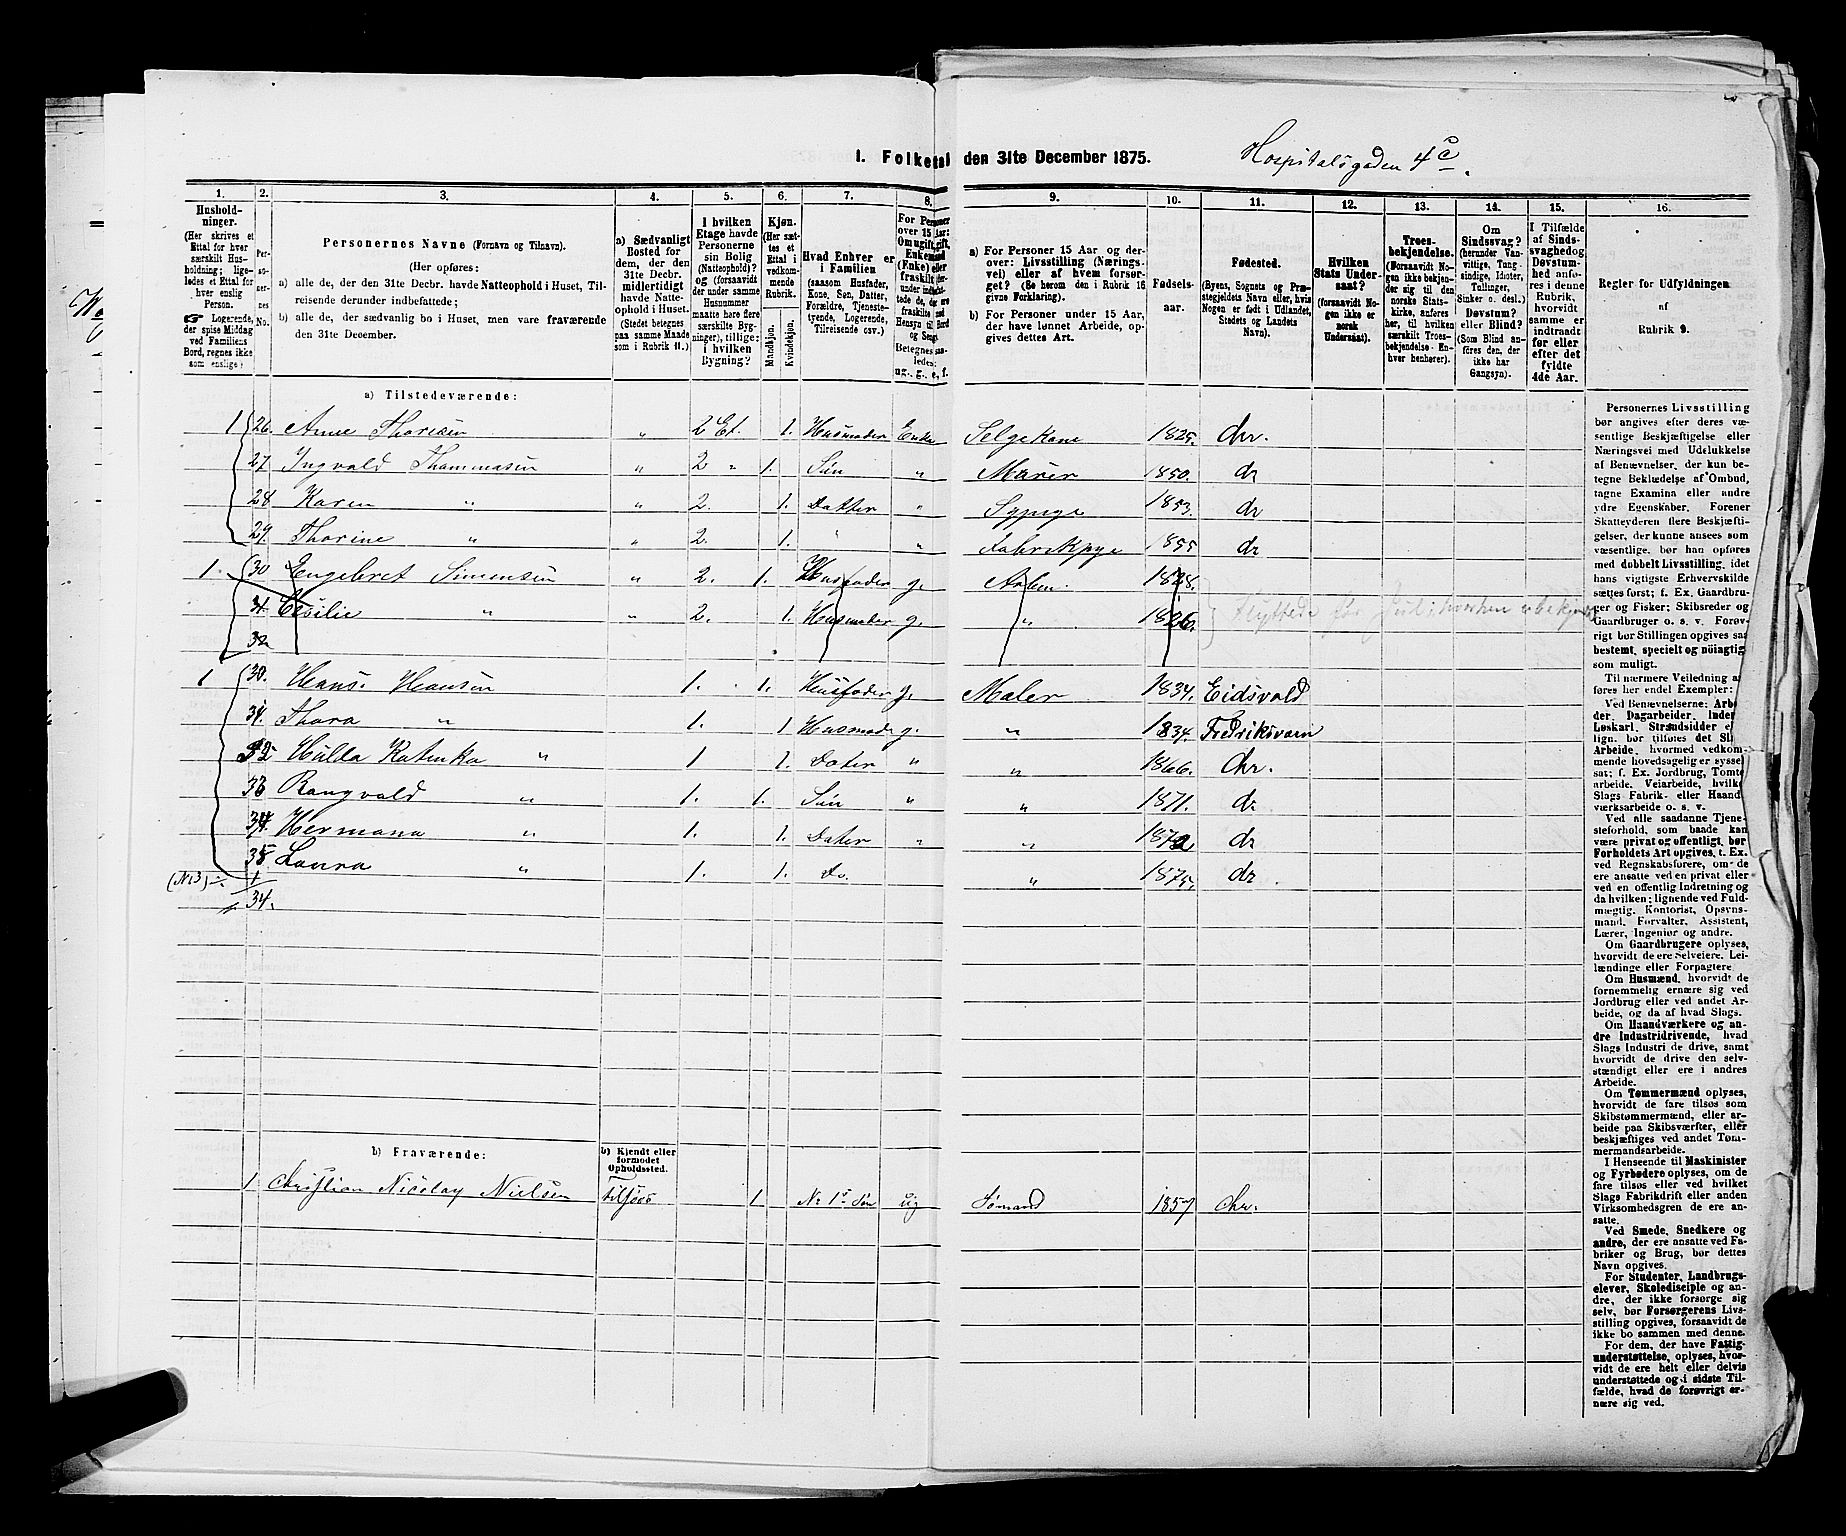 I. Folketal den 31te December 1875.
Hospitalsgaden 4c.
1. 2. 3. 4. 5. 6. 7. 8. 9. 10. 11. 12. 13. 14. 15. 16.
Husholdninger. (Her skrives et Ettal for hver særskilt Husholdning; ligeledes et Ettal for hver enslig Person. Logerende, der spise Middag ved Familiens Bord, regnes ikke som enslige.)
Personernes No.
Personernes Navne (Fornavn og Tilnavn).
(Her opføres:
a) alle de, der den 31te Decbr. havde Natteophold i Huset, Tilreisende derunder indbefattede;
b) alle de, der sædvanlig bo i Huset, men vare fraværende den 31te December.
a) Sædvanligt Bosted for dem, der den 31te Decbr. midlertidigt havde Natteophold i Huset. (Stedet betegnes paa samme Maade som i Rubrik 11.)
I hvilken Etage havde Personerne sin Bolig (Natteophold)? (forsaavidt der under samme Husnummer maatte høre flere særskilte Bygninger), tillige: i hvilken Bygning?
Kjøn. (Her sættes et Ettal i vedkommende Rubrik. Mandkjøn. Kvindekjøn.
Hvad Enhver er i Familien (saasom Husfader, Kone, Søn, Datter, Forældre, Tjenestetyende, Logerende, Tilreisende osv.)
a) For Personer 15 Aar og derover: Livsstilling (Næringsvei) eller af hvem forsørget? (Se herom den i Rubrik 16 givne Forklaring).
b) For Personer under 15 Aar, der have lønnet Arbeide, opgives dettes Art.
Fødselsaar.
Fødested. (Byens, Sognets og Præstegjeldets Navn eller, hvis Nogen er født i Udlandet, Stedets og Landets Navn).
Hvilken Stats Undersaat? (forsaavidt Nogen ikke er norsk Undersaat).
Troesbekjendelse. (Forsaavidt Nogen ikke bekjender sig til den norske Statskirke, anføres her, til hvilken særskilt Troesbekjendelse Enhver henhører).
Om Sindssvag? (herunder Vanvittige, Tungsindige, Idioter, Tullinger, Sinker o. desl.) Døvstum? eller Blind? (Som Blind anføres den, der ikke har Gangsyn).
I Tilfælde af Sindssvaghed og Døvstumhed anføres i denne Rubrik, hvorvidt samme er indtraadt før eller efter det fyldte 4de Aar.
Regler for Udfyldningen af Rubrik 9.
a) Tilstedeværende:
1 26. Anne Thoresen " 2 Et. 1. Husmoder Enke Selgekone 1825. Chr.
27 Ingvald Thommasen " 2 " 1. Sön " Murer 1850. dr
28 Karen " " 2. 1. Datter " Sypige 1853. dr
29. Thorine " " 2. 1. " " Fabrikpge 1855 dr
1. 30 Engebret Simensen " 2. 1. Husfader g. Arbm. 1828.
31. Cecilie " " 2. 1. Husmoder g. " 1826. Flyttede før
32
1 30. Hans Hansen 1. 1. Husfader g. Maler 1834. Eidsvold
31. Thora " 1. 1. Husmoder g. " 1834. Fredriksværn
32 Hulda Katinka " 1 1. Dater " " 1866. Chr.
33 Rangvald " 1. 1. Sön " " 1871. dr
34. Hermana " 1. 1. Dater " " 1872 dr
35 Laura " 1. 1. Do. " 1875. dr.
(No 3) ÷ 1
34.
b) Fraværende:
b) Kjendt eller formodet Opholdssted.
1 Christian Nicolay Nielsen tilsøes 1 No 1s Søn ug Sømand 1857 Chr.
Personernes Livsstilling bør angives efter deres væsentlige Beskjæftigelse eller Næringsvei med Udelukkelse af Benævnelser, der kun betegne Beklædelse af Ombud, tagne Examina eller andre ydre Egenskaber. Forener Skatteyderen flere Beskjæftigelser, der kunne ansees som væsentlige, bør han opføres med dobbelt Livsstilling, idet hans vigtigste Erhvervskilde sættes først; f. Ex. Gaardbruger og Fisker; Skibsreder og Gaardbruger o. s. v. Forøvrigt bør Stillingen opgives saa bestemt, specielt og nøiagtig som muligt.
Til nærmere Veiledning anføres her endel Exempler:
Om Gaardbrugere oplyses, hvorvidt de ere Selveiere, Leilændinge eller Forpagtere.
Om Husmænd, hvorvidt de fornemmelig ernære sig ved Jordbrug eller ved andet Arbeide, og da af hvad Slags.
Om Haandværkere og andre Industridrivende, hvad Slags Industri de drive, samt hvorvidt de drive den selvstændigt eller ere i andres Arbeide.
Om Tømmermænd oplyses, hvorvidt de fare tilsøs som Skibstømmermænd, eller arbeide paa Skibsværfter, eller beskjæftiges ved andet Tømmermandsarbeide.
I Henseende til Maskinister og Fyrbødere oplyses, om de fare tilsøs eller ved hvilket Slags Fabrikdrift eller anden Virksomhedsgren de ere ansatte.
Ved Smede, Snedkere og andre, der ere ansatte ved Fabriker og Brug, bør dettes Navn opgives.
For Studenter, Landbrugselever, Skoledisciple og andre, der ikke forsørge sig selv, bør Forsørgerens Livsstilling opgives, forsaavidt de ikke bo sammen med denne.
For dem, der have Fattigunderstøttelse, oplyses, hvorvidt de ere helt eller delvis understøttede og i sidste Tilfælde, hvad de forøvrigt ernære sig ved.